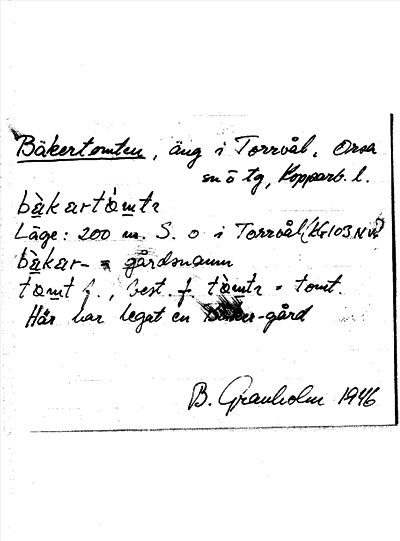 Bäkertomten, äng i Torrvål, Orsa
sn o tg, Kopparb. l.
bàkartòmtɩ
Läge: 200 m. S. o i Torrvål (KG103NV)
bàkar- = gårdsnamn
tòmt f., best. f. tòmtɩ = tomt.
Här har legat en Bäker-gård
B. Granholm 1946